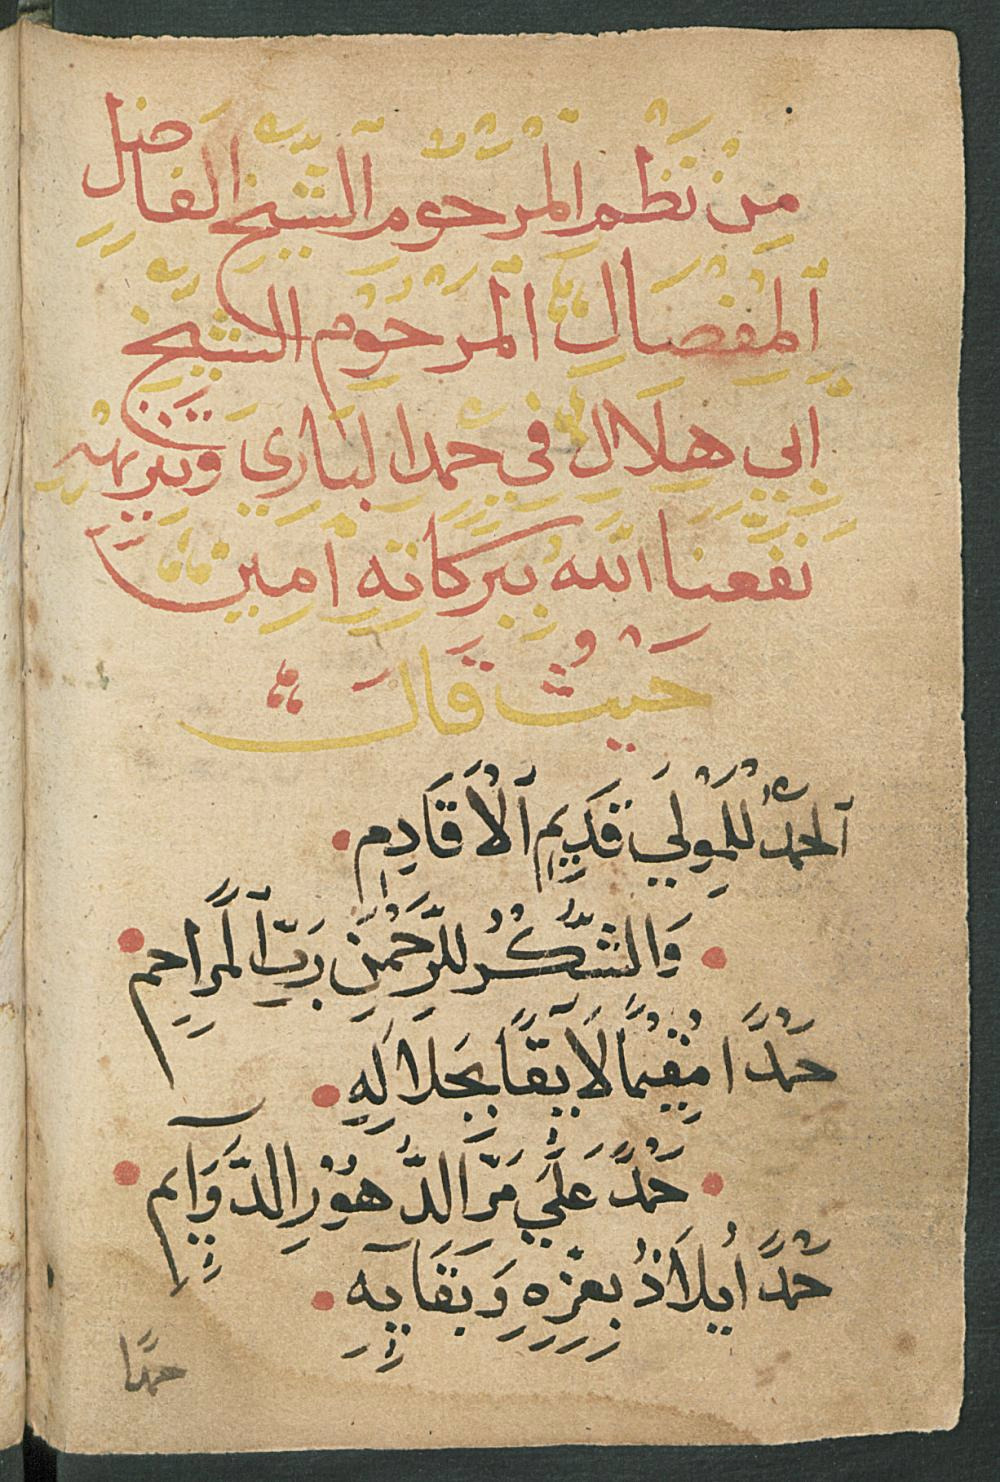 مِنْ نَظْمِ المَرْحُومِ الشَّيْخِ الفَاضِلِ
اَلمِفضَالِ المَرْحُومِ الشَّيْخِ
ابي هِلَالِ في حَمدِ البَارِي وَتَنزِيهِهِ
نَفعنا اللّه ببركاته امين
حَيْثُ قَالَ
اَلحَمْدُ لِلْمَوْلَي قَدِيمِ اَلْأَقَادِمِ
وَالشُّكْرُ لِلرَّحْمٰنِ رَبِّ اَلمَرَاحِمِ
حَمْدًا مُقِيْمًا لَا يقًا بِجَلَالِهِ
حَمْدً عَلَي مَرِّ الدُّهُوْرِ الدَّوَآيِمِ
حَمْدًا يُلَاذُ بِعِزِّهِ وَبَقَآيِهِ
حمدًا